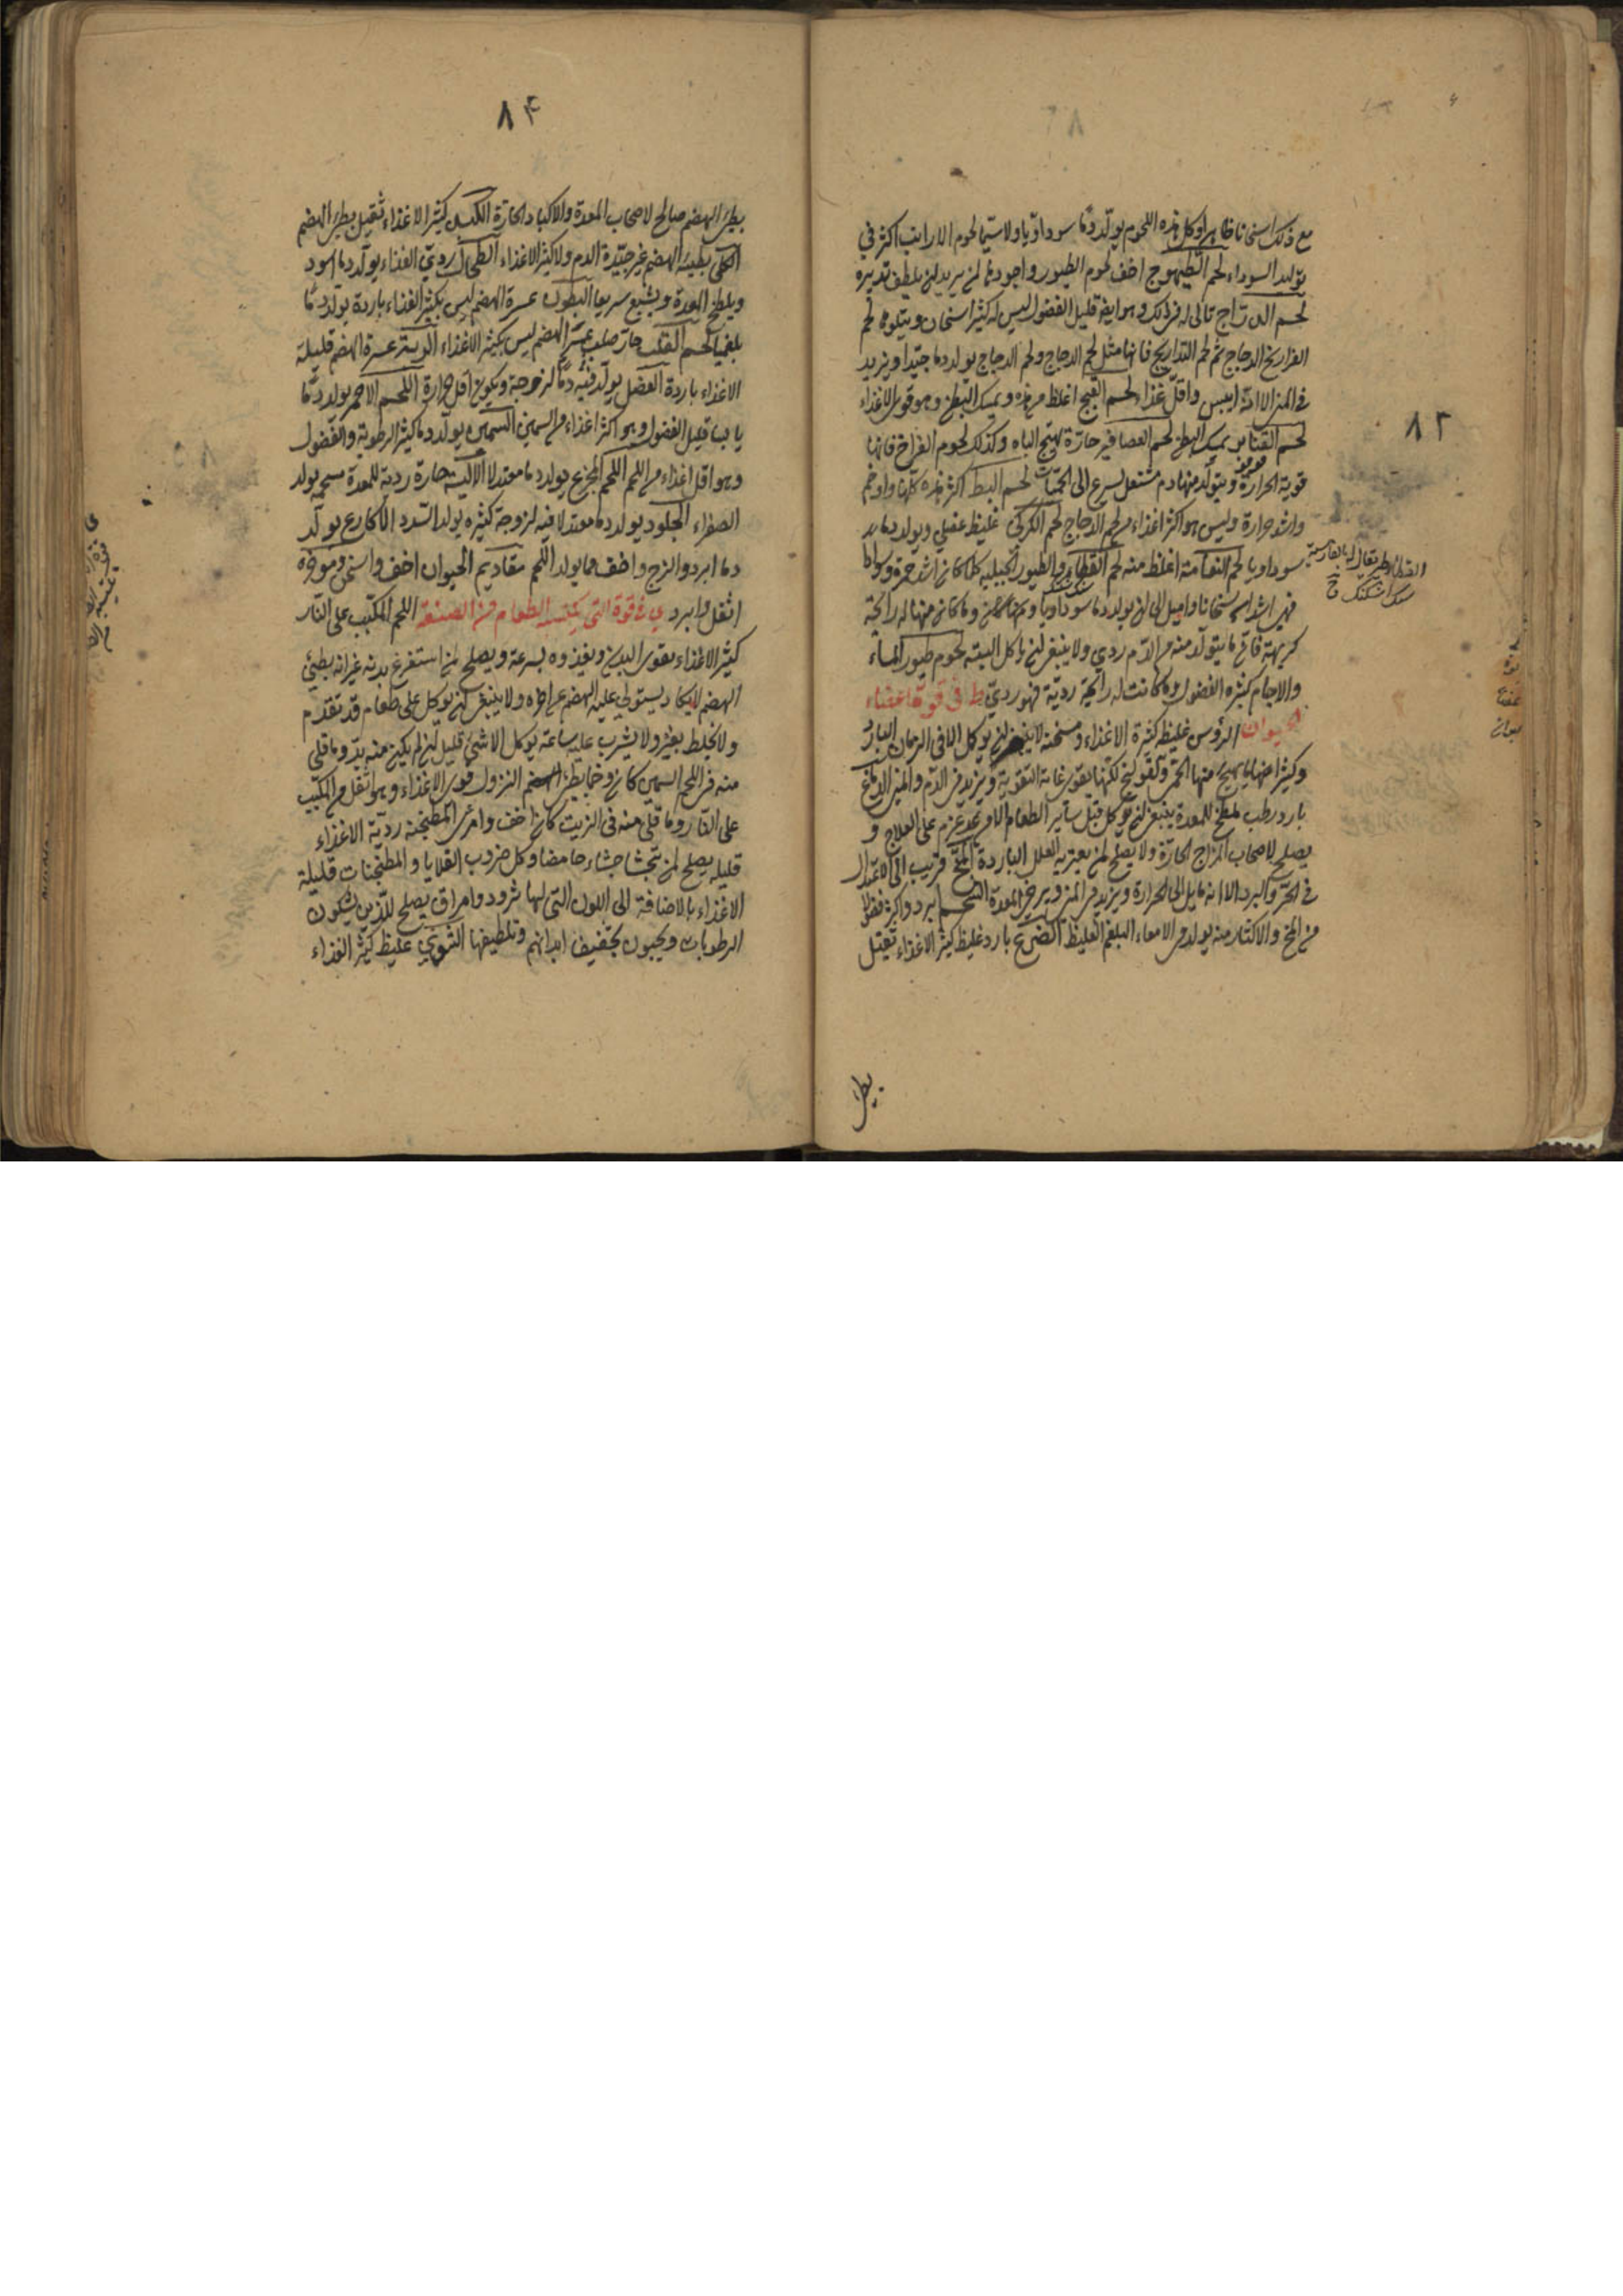 مع ذلك اسخانا ظاهرا وكل هذه اللحوم يولد دما سوداويا ولا سيما لحوم الارانب اكثر في
توليد السوداء لحم الطيهوج اخف لحوم الطيور واجودها لمن يريد ان يلطف تدبيره
لحم الدراج تالى له في ذلك وهو ايضا قليل الفضول ليس له كثير اسخان ويتلوه لحم
الفراريخ الدجاج ثم لحم التداريج فانها مثل لحم الدجاج ولحم الدجاج يولد دما جيدا ويزيد
في المنى الا انه ايبس واقل غذاء لحم القبج اغلظ من هذه ويمسك البطن وهو قوى الاغذاء
لحم القنابر يمسك البطن لحم العصافير حارة تهيج الباه وكذلك لحوم الفراخ فانها
قوية الحرارة ويتولد منها دم مشتعل يسرع الى الحميات لحم البط اكثر هذه كلها واوخم
واشد حرارة وليس هو اكثر اغذاء من لحم الدجاج لحم الكركى غليظ عضلي ويولد دما
سوداويا لحم النعامة اغلظ منه لحم القطا والطيور الجبلية كلما كان اشد حمرة وسوادا
فهي اشد اسخانا واميل الى ان يولد دما سوداويا وما كان منها له رايحة
كريهة فان ما يتولد منه من الدم ردي ولا ينبغى ان ياكل البتة لحوم طيور الماء
والاجام كثيره الفضول وما كانت له رايحة ردية فهو ردي ط في قوة اعضاء
الحيوان الرؤس غليظ كثيرة الاغذاء ومسخنة لا ينبغى ان يوكل الا في الزمان البارد
وكثيرا ما يهيج منها الحمى والقولنج لكنها يقوى غاية التقوية ويزيد في الدم والمنى الدماغ
بارد رطب ملطخ للمعدة ينبغى ان يوكل قبل ساير الطعام الا من قد عزم على العلاج و
يصلح لاصحاب المزاج الحارة ولا يصلح لمن يعتريه العلل الباردة المخ قريب الى الاعتدال
في الحر والبرد الا انه مايل الى الحرارة ويزيد في المنى ويرخى المعدة الشحم ابرد واكثر فضولا
من المخ والاكثار منه يولد في الامعاء البلغم الغليظ الضرع بارد غليظ كثير الاغذاء ثقيل
بطى
٨٢
القطا طير يقال له بالفارسية
سنك اشكنك
٨۴
بطئ الهضم صالح لاصحاب المعدة والاكباد الحارة الكبد كثير الاغذاء ثقيل بطئ الهضم
الكلى بطيئة الهضم غير جيدة الدم ولا كثير الاغذاء الطحال ردي الغذاء يولد دما اسود
ويلطخ المعدة ويشبع سريعا البطون عسرة الهضم ليس بكثير الغذاء باردة يولد دما
بلغميا لحم القلب حار صلب عسر الهضم ليس بكثير الاغذاء الرية عسرة الهضم قليلة
الاغذاء باردة العضل يولد فيه دما لزوجة ويكون اقل حرارة اللحم الاحمر يولد دما
يابسا قليل الفضول وهو اكثر اغذاء من السمين السمين يولد دما كثير الرطوبة والفضول
وهو اقل اغذاء من اللحم اللحم المجزع يولد دما معتدلا الالية حارة ردية للمعدة سمجه يولد
الصفراء الجلود يولد دما معتدلا فيه لزوجة كثيره يولد السدد الاكارع يولد
دما ابرد والزج واخف مما يولد اللحم مقاديم الحيوان اخف واسخن وموخره
اثقل وابرد ي في قوة التى يكتسبه الطعام من الصنعة اللحم المكبب على النار
كثير الاغذاء يقوى البدن ويغذوه بسرعة ويصلح لمن استفرغ بدنه غير انه بطئ
الهضم لا يكاد يستولى عليه الهضم عن اخره ولا ينبغى ان يوكل على طعام قد تقدم
ولا يخلط بغيره ولا يشرب عليه ساعة يوكل الا شئ قليل ان لم يكن منه بد وما قلى
منه في اللحم السمين كان وخما بطئ الهضم النزول قوى الاغذاء وهو اثقل من المكبب
على النار وما قلى منه في الزيت كان اخف وامرى المطجنة ردية الاغذاء
قليله يصلح لمن يتجشا جشاء حامضا وكل ضروب القلايا والمطجنات قليلة
الاغذاء بالاضافة الى اللون التى لها ثرود وامراق يصلح للذين يشكون
الرطوبات ويحبون تجفيف ابدانهم وتلطيفها الشوي غليظ كثير الغذاء